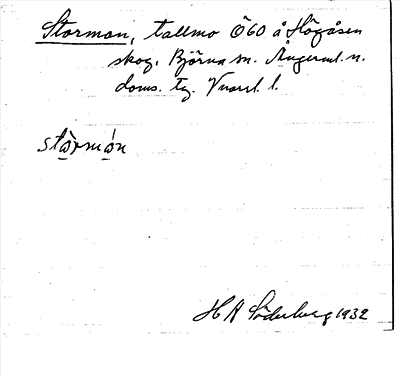 Stormon, tallmo Ö60 å Högåsen
skog, Björna sn. Ångerml. n.
doms. tg.
stò̱rmó̱n
H A Söderberg 1932